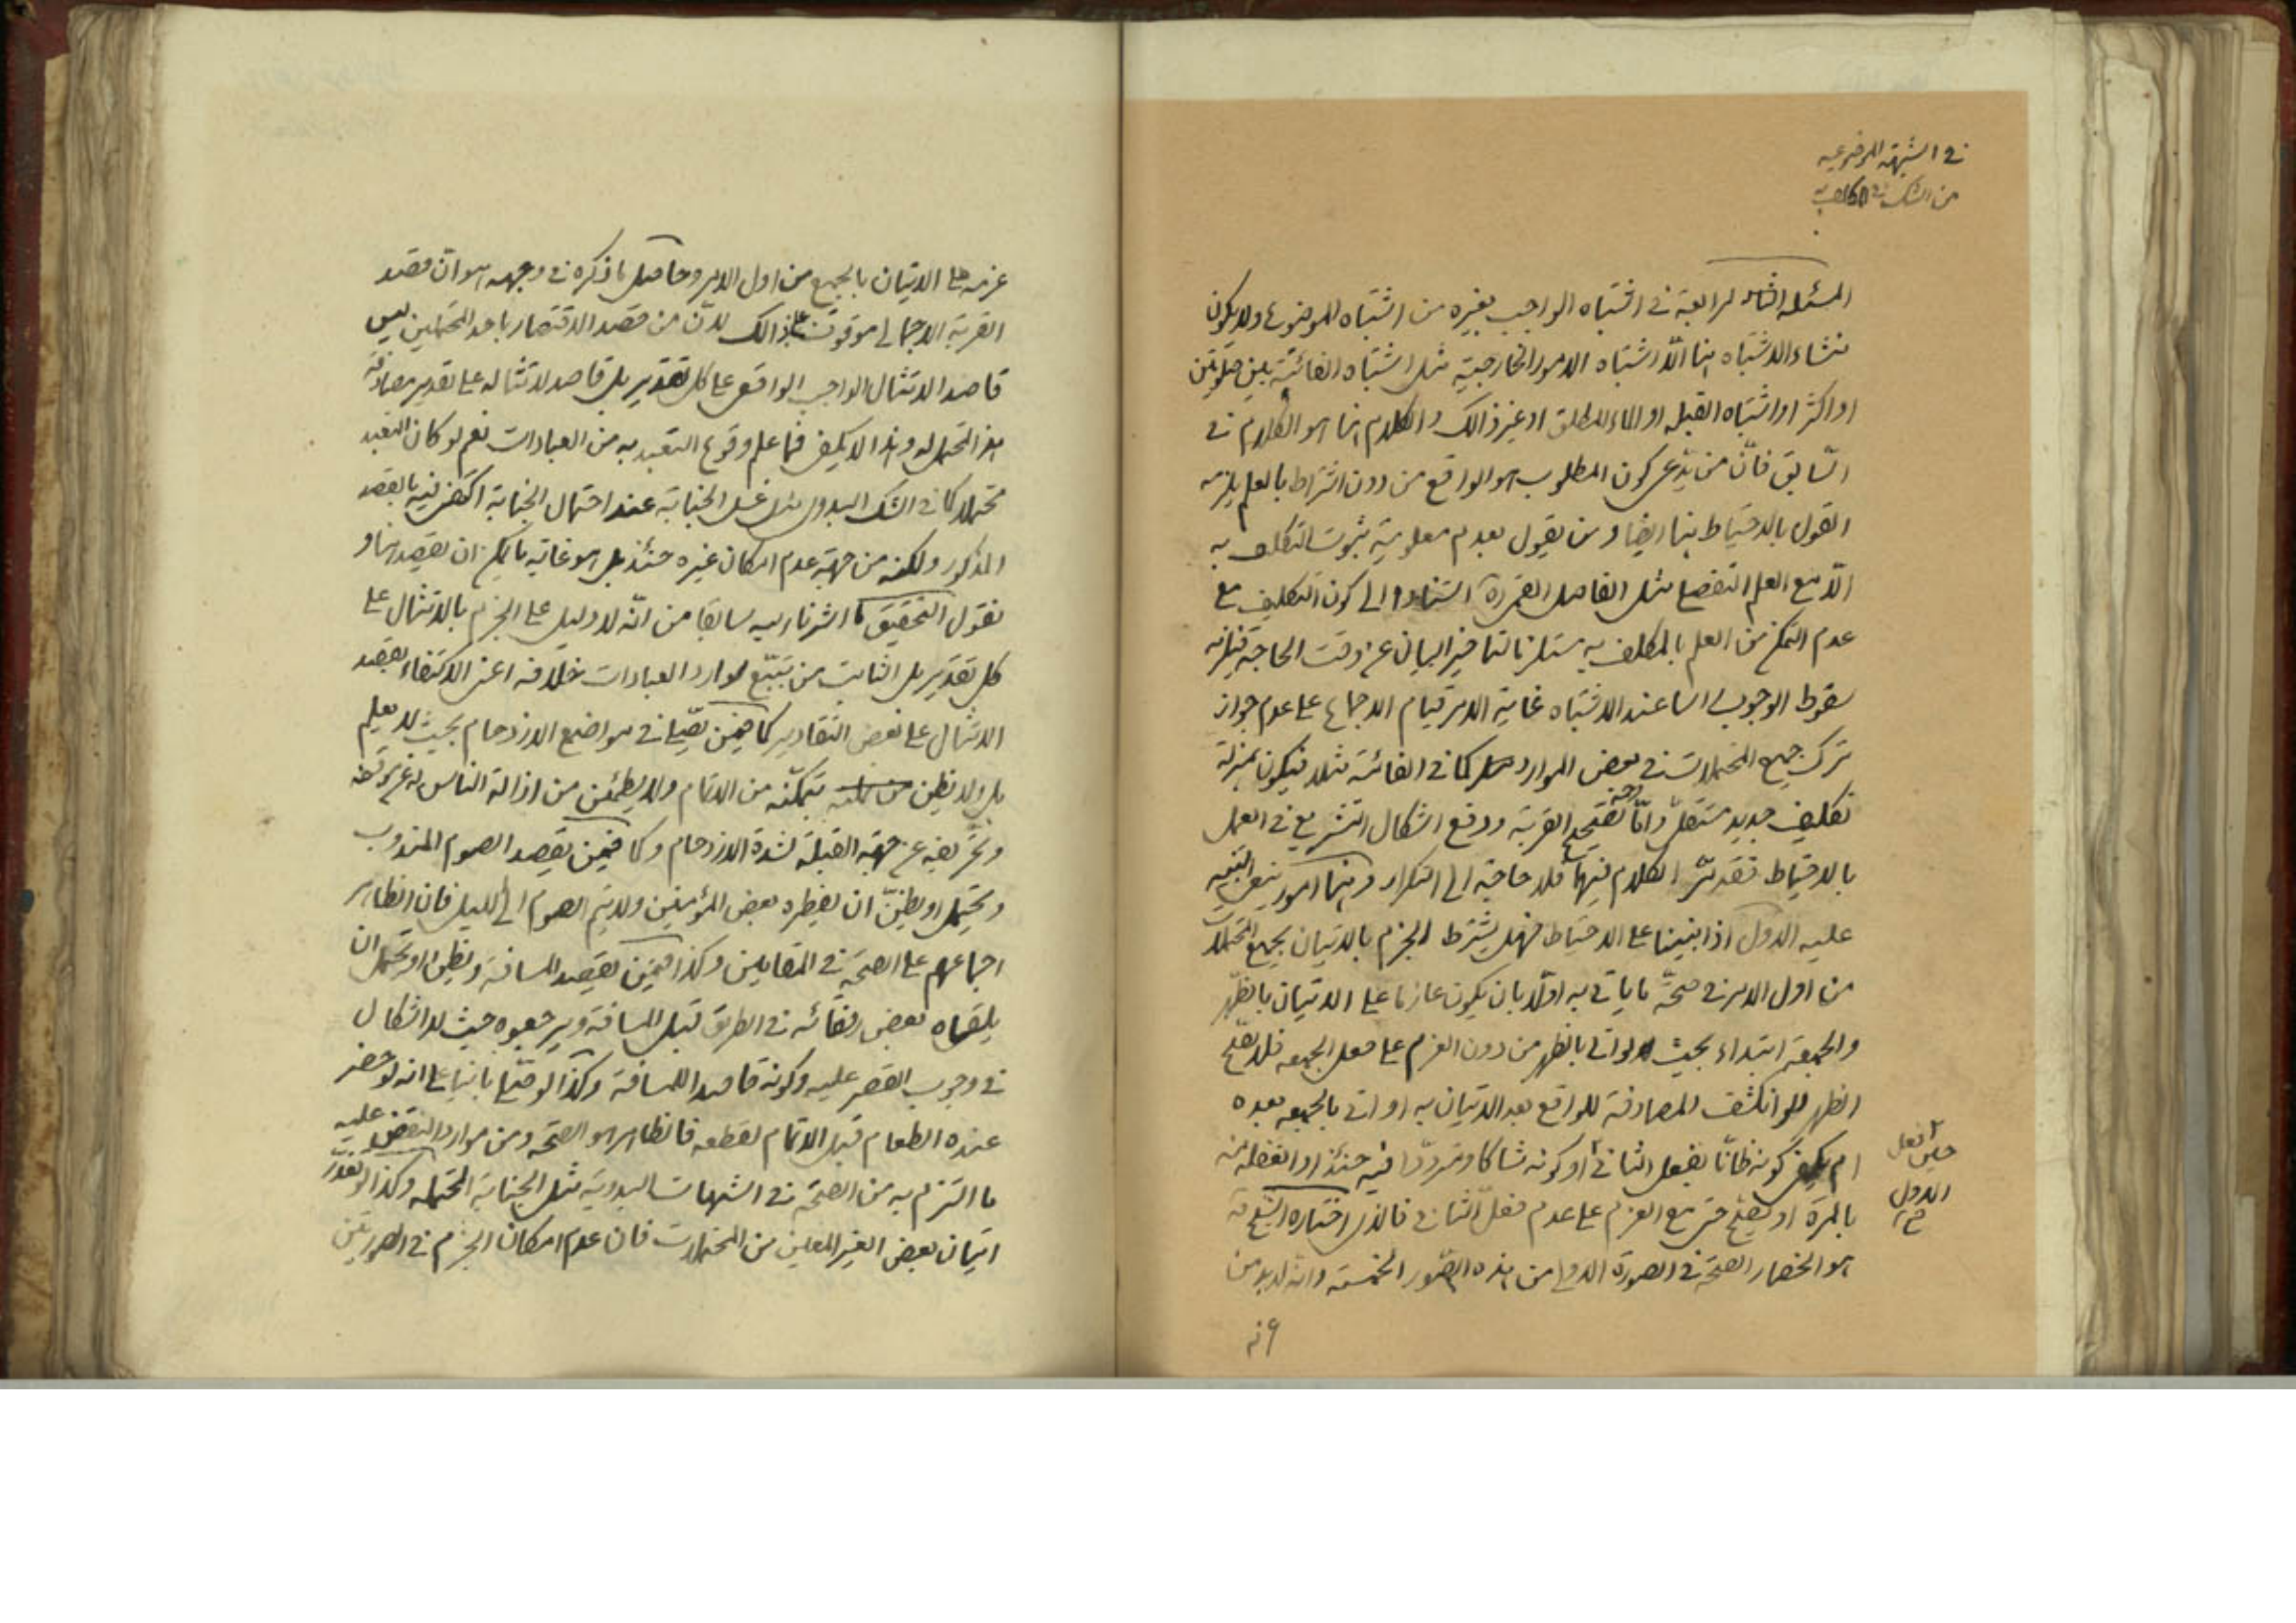 في الشبهة الموضوعيه
من الشك في المكلف به
المسئلة الرابعة في اشتباه الواجب بغيره من اشتباه الموضوع ولا يكون
منشاء الاشتباه هنا الّا اشتباه الامور الخارجية مثل اشتباه الفائتة بين صلوتين
او اكثر او اشتباه القبلة او الماء المطلق او غير ذالك والكلام هنا هو الكلام في
السّابق فانّ من يدّعى كون المطلوب هو الواقع من دون اشتراط بالعلم يلزمه
القول بالاحتياط هنا ايضا ومن يقول بعدم معلومية ثبوت التكلف به
الّا مع العلم التفصيلى مثل الفاضل القمى ره استنادا الى كون التكليف مع
عدم التمكن من العلم بالمكلف به مستلزما لتاخير البيان عن وقت الحاجة فيلزمه
سقوط الوجوب راسا عند الاشتباه غاية الامر قيام الاجماع على عدم جواز
ترك جميع المحتملات في بعض الموارد كما في الفائتة مثلا فيكون بمنزلة
تكليف جديد مستقل وامّا تصحيح القربة ودفع اشكال التشريع في العمل
بالاحتياط فقد مرّ الكلام فيها فلا حاجة الى التكرار وهنا امور ينبغى التنبيه
عليه الاول اذا بنينا على الاحتياط فهل يشترط الجزم بالاتيان بجميع المحتملات
من اول الامر في صحّة ما ياتي به اوّلا بان يكون عازما على الاتيان بالظهر
والجمعة ابتداء بحيث لو اتى بالظهر من دون العزم على فعل الجمعه فلا يصّح
الظهر ولو انكشف المصادفة للواقع بعد الاتيان به او اتى بالجمعه بعده
ام يكفى كونه ظانّا بفعل الثاني او كونه شاكا ومتردّدا فيه حينئذ او الغفلة منه
حين فعل
الاول
صح
بالمرة او يصّح حتى مع العزم على عدم فعل الثاني فالذى اختاره الشيخ ره
هو انحصار الصّحة في الصورة الاولى من هذه الصّور الخمسة وانه لا بد من
عزمه على الاتيان بالجميع من اول الامر وحاصل ما ذكره في وجهه هو انّ قصد
القربة الاجمالى موقوف على ذالك لانّ من قصد الاقتصار باحد المحتملين ليس
قاصد الامتثال الواجب الواقعى على كل تقدير بل قاصد لامتثاله على تقدير مصادفة
هذا المحتمل له وهذا لا يكفى فيما علم وقوع التعبد به من العبادات نعم لو كان التعبد
محتملا كما في الشك البدوى مثل غسل الجنابة عند احتمال الجنابة اكتفى فيه بالقصد
المذكور ولكنه من جهة عدم امكان غيره حينئذ بل هو غاية ما يمكن ان يقصد هنا و
نقول التحقيق كما اشرنا اليه سابقا من انّه لا دليل على الجزم بالامتثال على
كل تقدير بل الثابت من تتبّع موارد العبادات خلافه اعنى الاكتفاء بقصد
الامتثال على بعض التقادير كما فيمن يصّلى في مواضع الازدحام بحيث لا يعلم
بل ولا يظن تمكّنه من الاتمام ولا يطمئن من ازالة الناس له عن موقفه
وتحريفه عن جهة القبلة لشدة الازدحام وكما فيمن يقصد الصوم المندوب
ويحتمل او يظنّ ان يفطره بعض المؤمنين ولا يتم الصوم الى الليل فان الظاهر
اجماعهم على الصحّة في المقامين وكذا فيمن يقصد المسافة ويظن او يحتمل ان
يلقاه بعض رفقائه في الطريق قبل المسافة ويرجعوه حيث لا اشكال
في وجوب القصر عليه وكونه قاصدا للمسافة وكذا لو صّلى بانيا على انه لو حضر
عنده الطعام قبل الاتمام لقطعه فالظاهر هو الصحّة ومن موارد النقض عليه
ما التزم به من الصحّة في الشبهات البدوية مثل الجنابة المحتملة وكذا لو تعذّر
اتيان بعض الغير المعين من المحتملات فان عدم امكان الجزم في الصورتين